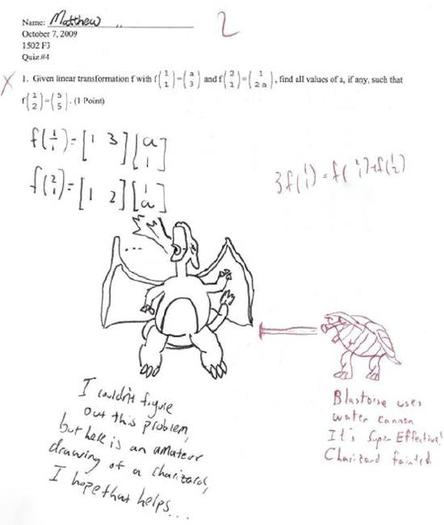 Name: Matthew
2
October 7, 2009
1502 F3
Quiz #4
X 1. Given linear transformation f with f(1 1)=(a 3) and f(2 1)=(1 2a), find all values of a, if any, such that
f(1 2)=(5 5). (1 Point)
f(1 1)=[1 3][a 1]
f(2 1)=[1 2][1 a]
3f(1 1)=f(2 1)+f(1 2)
...
I couldn't figure
out this problem,
but here is an amateur
drawing of a charizard,
I hope that helps...
Blastoise uses
water cannon
It's Super Effective!
Charizard fainted